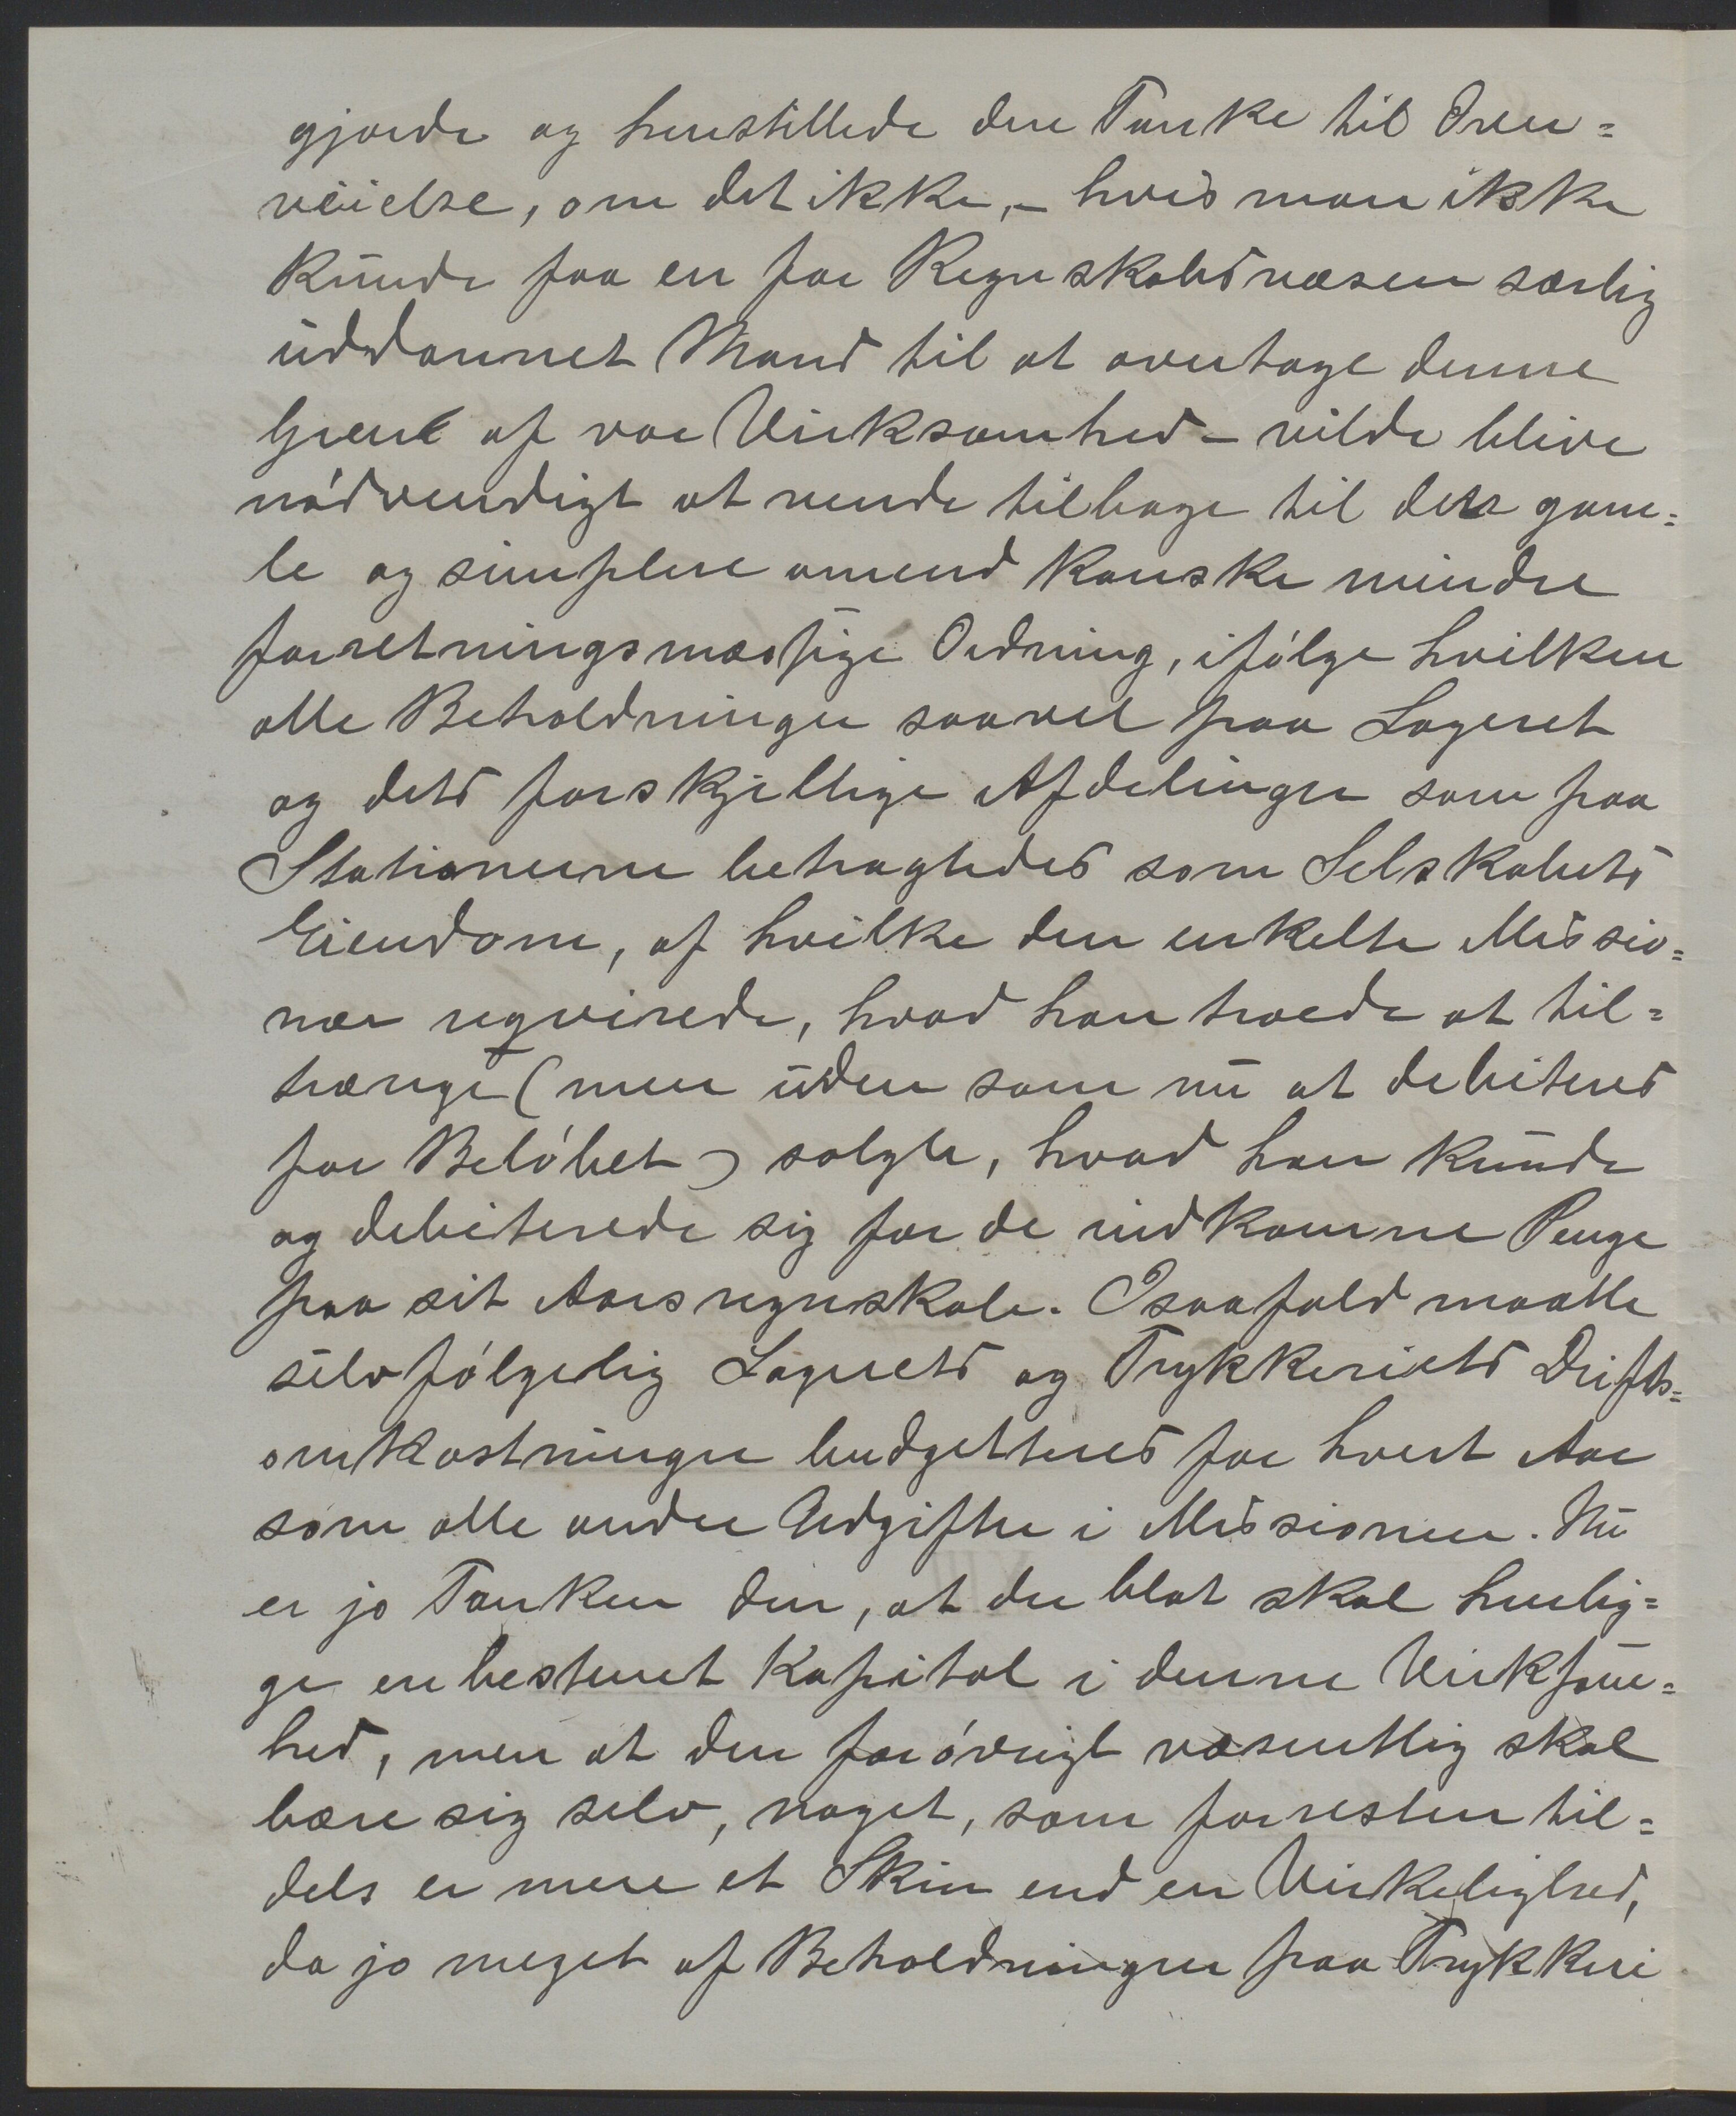 gjorde og henstillede den Tanke til Over=
veielse, om det ikke, - hvis man ikke
kunde faa en for Regnskabsvæsen særlig
uddannet Mand til at overtage denne
Green af vor Virksomhed - vilde blive
nødvendigt at vende tilbage til den gam=
le og simplere omend kanske mindre
forretningsmæssige Ordning, ifølge hvilken
alle Beholdninger saavel paa Lageret
og dets forskjellige Afdelinger som paa
Stationerne betragtedes som Selskabets
Eiendom, af hvilke den enkelte Missio=
nær reqvirede, hvad han troede at til=
trænge (men uden som nu at debiteres
for Beløbet) solgte, hvad han kunde
og debiterede sig for de indkomne Penge
paa sit Aarsregnskab. Isaafald maatte
selvfølgelig Lagerets og Trykkeriets Drifts=
omkostninger budgetteres for hvert Aar
som alle andre Udgifter i Missionen. Nu
er jo Tanken den, at der blot skal henlig=
ge en bestemt Kapital i denne Virksom=
hed, men at den forøvrigt væsentlig skal
bære sig selv, noget, som forresten til=
dels er mere et Skin end en Virkelighed,
da jo meget af Beholdningen paa Trykkeri